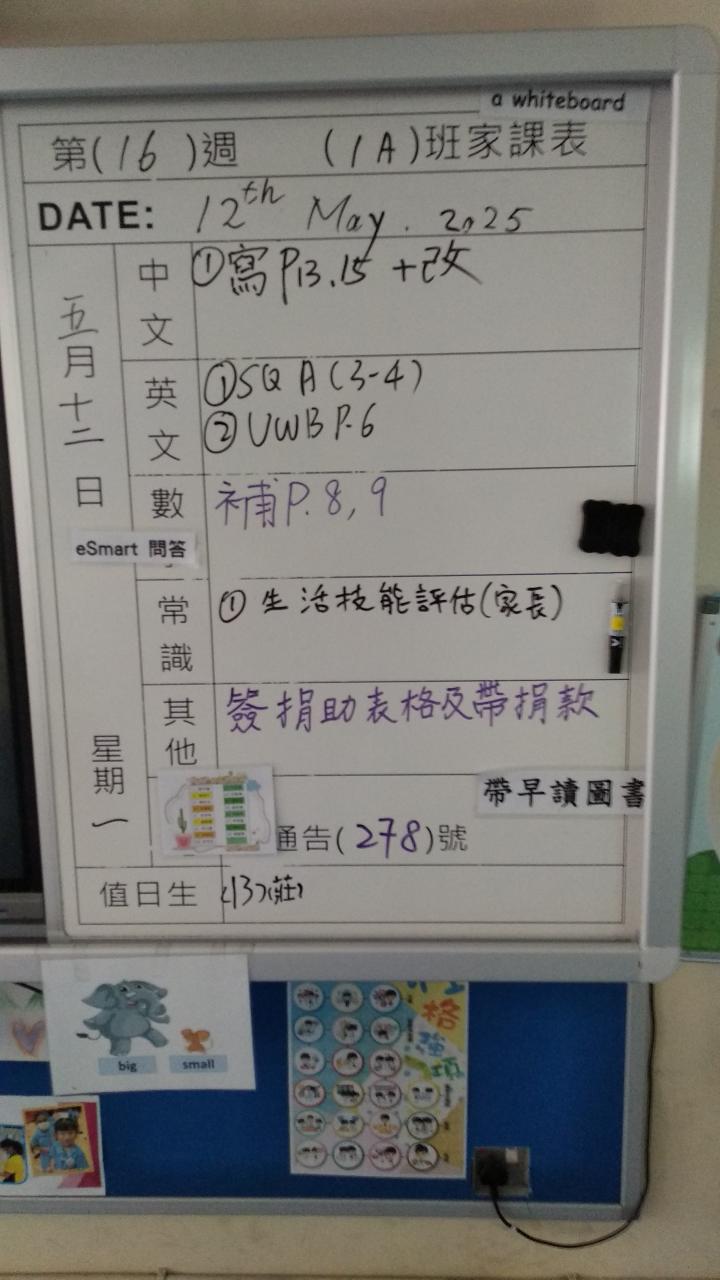 a whiteboard
第(16)週 (1A)班家課表
DATE: 12th May. 2025
五月十二日
星期一
中文
①寫P13.15 +改
英文
①SQ A(3-4)
②UWB P.6
數
補P.8,9
eSmart 問答
常識
①生活技能評估(家長)
其他
簽捐助表格及帶捐款
帶早讀圖書
通告(278)號
值日生
(13)(莊)
big
small
格
強項